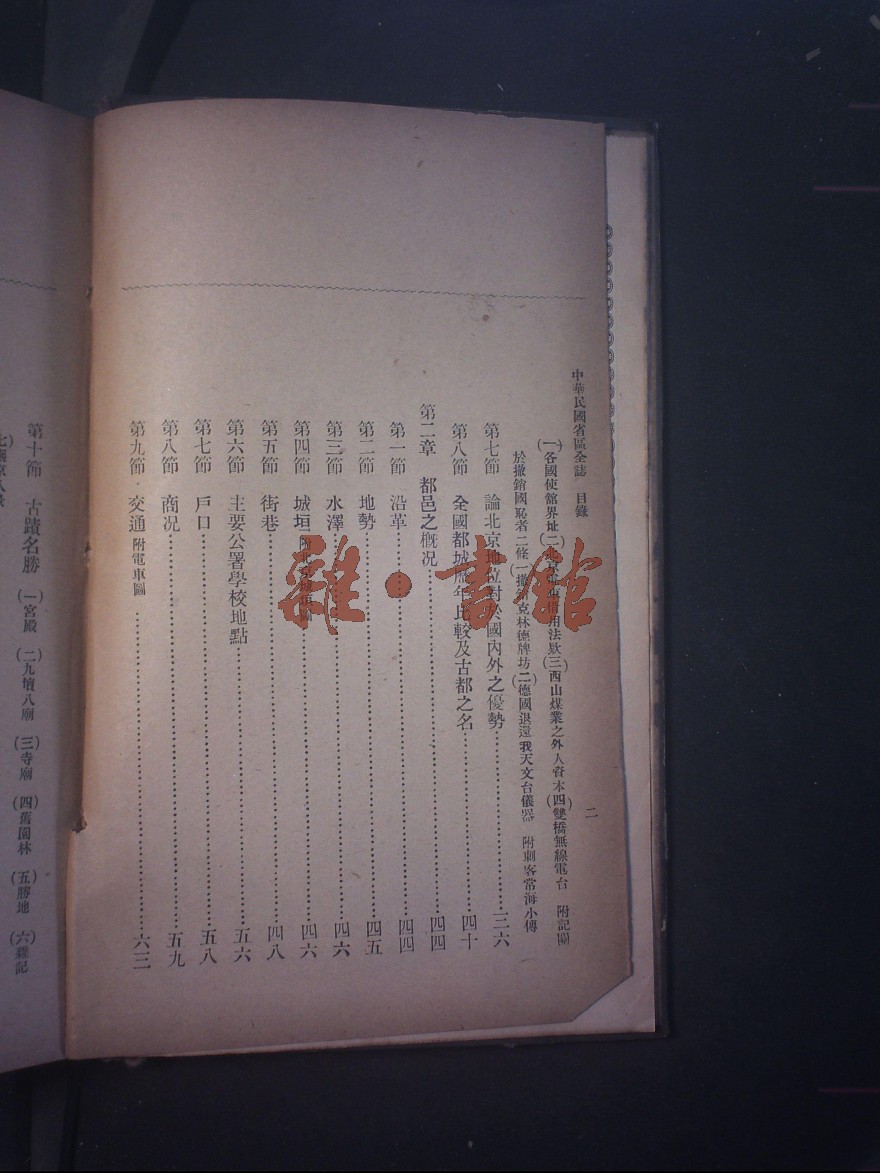 中華民國省區全誌　目錄
二
(一)各國使館界址(二)北京　　借用法款(三)西山煤業之外人資本(四)雙橋無線電台　附記關
於撤銷國恥者二條(一)撤　克林德牌坊(二)德國退還我天文台儀器　附刺客常海小傳
第七節　論北京地位對於國內外之優勢……三六
第八節　全國都城歷年比較及古都之名……四十
第二章　都邑之概况……四四
第一節　沿革……四四
第二節　地勢……四五
第三節　水澤……四六
第四節　城垣　附北京城垣圖……四六
第五節　街巷……四八
第六節　主要公署學校地點……五六
第七節　戶口……五八
第八節　商况……五九
第九節　交通　附電車圖……六三
第十節　古蹟名勝　(一)宮殿　(二)九壇八廟　(三)寺廟　(四)舊園林　(五)勝地　(六)雜記
雜·書館